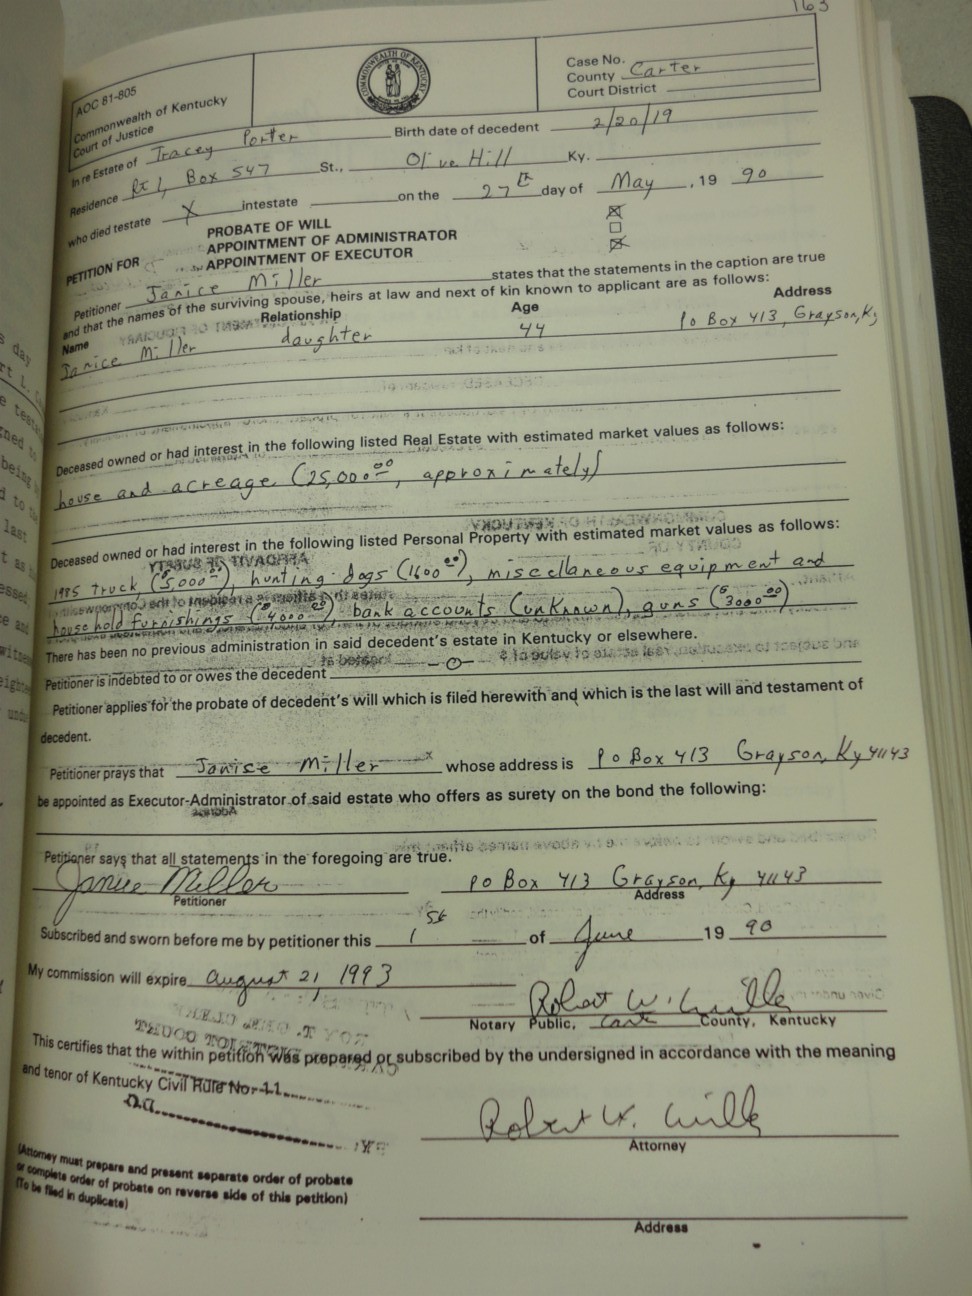 163
AOC 81-805
Commonwealth of Kentucky
Court of Justice
COMMONWEALTH OF KENTUCKY
Case No.
County Carter
Court District
In re Estate of Tracey Porter Birth date of decedent 2/20/19
Residence Rt 1, Box 547 St., Olive Hill Ky.
who died testate X intestate on the 27th day of May, 19 90
PETITION FOR
PROBATE OF WILL ☒
APPOINTMENT OF ADMINISTRATOR ☐
APPOINTMENT OF EXECUTOR ☒
Petitioner Janice Miller states that the statements in the caption are true
and that the names of the surviving spouse, heirs at law and next of kin known to applicant are as follows:
Name Relationship Age Address
Janice Miller daughter 44 Po Box 413, Grayson, Ky
Deceased owned or had interest in the following listed Real Estate with estimated market values as follows:
house and acreage (25,000.00, approximately)
Deceased owned or had interest in the following listed Personal Property with estimated market values as follows:
1985 truck ($5000.00), hunting dogs (1600.00), miscellaneous equipment and
household furnishings ($4000.00), bank accounts (unknown), guns ($3000.00)
There has been no previous administration in said decedent's estate in Kentucky or elsewhere.
Petitioner is indebted to or owes the decedent -0-
Petitioner applies for the probate of decedent's will which is filed herewith and which is the last will and testament of
decedent.
Petitioner prays that Janise Miller x whose address is Po Box 413 Grayson, Ky 41143
be appointed as Executor-Administrator of said estate who offers as surety on the bond the following:
Petitioner says that all statements in the foregoing are true.
Janice Miller PO Box 413 Grayson, Ky 41143
Petitioner Address
Subscribed and sworn before me by petitioner this 1st of June 19 90
My commission will expire August 21, 1993
Robert W. Miller
Notary Public, County, Kentucky
This certifies that the within petition was prepared or subscribed by the undersigned in accordance with the meaning
and tenor of Kentucky Civil Rule No. 11
Robert W. Miller
Attorney
(Attorney must prepare and present separate order of probate
or complete order of probate on reverse side of this petition)
(To be filed in duplicate)
Address